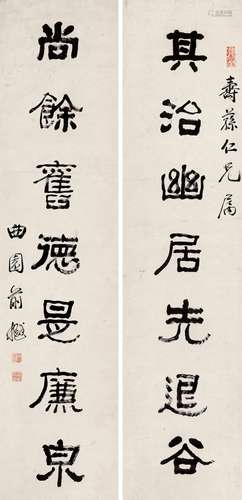 壽蓀仁兄屬
其治幽居先退谷
尚餘舊德是廉泉
曲園俞樾